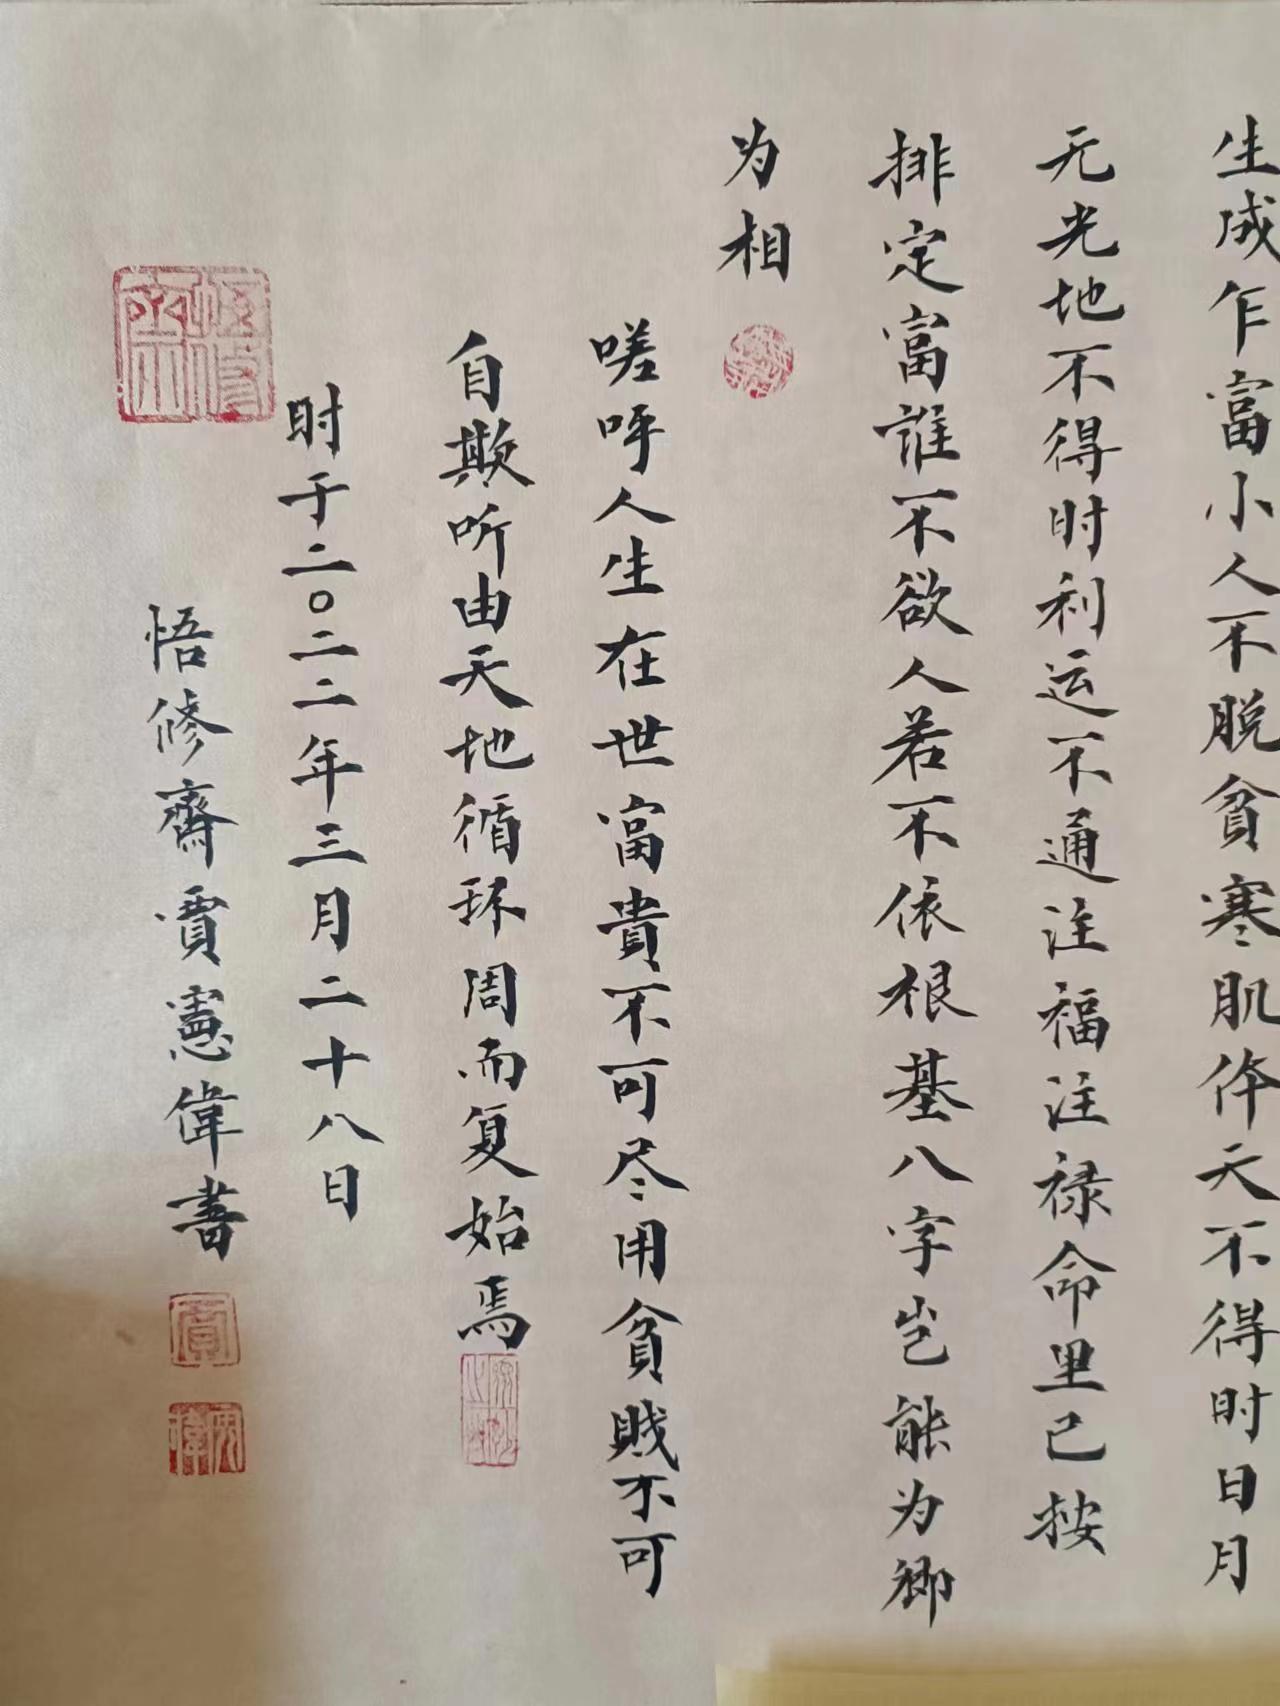 生成乍富小人不脱贫寒肌体天不得时日月
无光地不得时利运不通注福注禄命里已按
排定富誰不欲人若不依根基八字岂能为卿
为相
嗟呼人生在世富貴不可尽用貧贱不可
自欺听由天地循环周而复始焉
时于二〇二二年三月二十八日
悟修齋賈憲偉書
悟修齋
賈